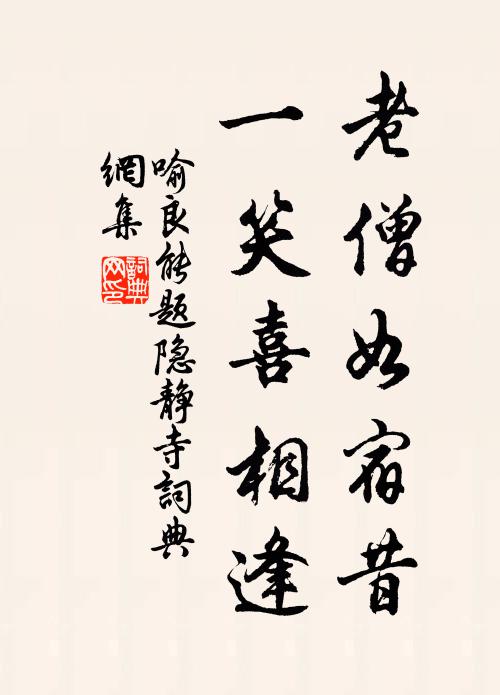 老僧如宿昔
一笑喜相逢
喻良能题隐静寺詞典
網集
詞典網印